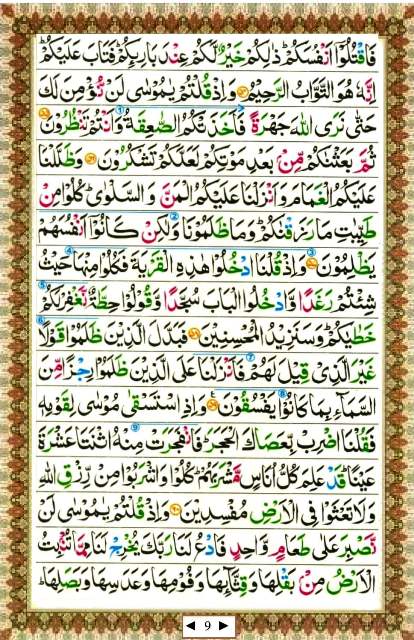 فَاقْتُلُوْۤا اَنْفُسَكُمْؕ ذٰلِكُمْ خَيْرٌ لَّكُمْ عِنْدَ بَارِىِٕكُمْؕ فَتَابَ عَلَيْكُمْؕ
اِنَّهٗ هُوَ التَّوَّابُ الرَّحِيْمُ ﴿۵۴﴾ وَاِذْ قُلْتُمْ يٰمُوْسٰى لَنْ نُّؤْمِنَ لَكَ
حَتّٰى نَرَى اللّٰهَ جَهْرَةً فَاَخَذَتْكُمُ الصّٰعِقَةُ وَاَنْتُمْ تَنْظُرُوْنَ ﴿۵۵﴾
ثُمَّ بَعَثْنٰكُمْ مِّنْۢ بَعْدِ مَوْتِكُمْ لَعَلَّكُمْ تَشْكُرُوْنَ ﴿۵۶﴾ وَظَلَّلْنَا
عَلَيْكُمُ الْغَمَامَ وَاَنْزَلْنَا عَلَيْكُمُ الْمَنَّ وَالسَّلْوٰىؕ كُلُوْا مِنْ
طَيِّبٰتِ مَا رَزَقْنٰكُمْؕ وَمَا ظَلَمُوْنَا وَلٰكِنْ كَانُوْۤا اَنْفُسَهُمْ
يَظْلِمُوْنَ ﴿۵۷﴾ وَاِذْ قُلْنَا ادْخُلُوْا هٰذِهِ الْقَرْيَةَ فَكُلُوْا مِنْهَا حَيْثُ
شِئْتُمْ رَغَدًا وَّادْخُلُوا الْبَابَ سُجَّدًا وَّقُوْلُوْا حِطَّةٌ نَّغْفِرْ لَكُمْ
خَطٰيٰكُمْؕ وَسَنَزِيْدُ الْمُحْسِنِيْنَ ﴿۵۸﴾ فَبَدَّلَ الَّذِيْنَ ظَلَمُوْا قَوْلًا
غَيْرَ الَّذِىْ قِيْلَ لَهُمْ فَاَنْزَلْنَا عَلَى الَّذِيْنَ ظَلَمُوْا رِجْزًا مِّنَ
السَّمَآءِ بِمَا كَانُوْا يَفْسُقُوْنَ ﴿۵۹﴾ وَاِذِ اسْتَسْقٰى مُوْسٰى لِقَوْمِهٖ
فَقُلْنَا اضْرِبْ بِّعَصَاكَ الْحَجَرَؕ فَانْفَجَرَتْ مِنْهُ اثْنَتَا عَشْرَةَ
عَيْنًاؕ قَدْ عَلِمَ كُلُّ اُنَاسٍ مَّشْرَبَهُمْؕ كُلُوْا وَاشْرَبُوْا مِنْ رِّزْقِ اللّٰهِ
وَلَا تَعْثَوْا فِى الْاَرْضِ مُفْسِدِيْنَ ﴿۶۰﴾ وَاِذْ قُلْتُمْ يٰمُوْسٰى لَنْ
نَّصْبِرَ عَلٰى طَعَامٍ وَّاحِدٍ فَادْعُ لَنَا رَبَّكَ يُخْرِجْ لَنَا مِمَّا تُنْۢبِتُ
الْاَرْضُ مِنْۢ بَقْلِهَا وَقِثَّآىِٕهَا وَفُوْمِهَا وَعَدَسِهَا وَبَصَلِهَاؕ
◄ 9 ►